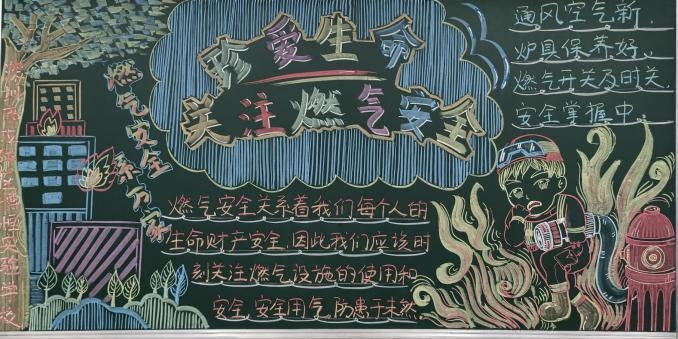 珍爱生命
关注燃气安全
通风空气新,
炉具保养好、
燃气开关及时关,
安全掌握中.
燃气安全系万家
燃气安全关系着我们每个人的
生命财产安全,因此我们应该时
刻关注燃气设施的使用和
安全,安全用气,防患于未然